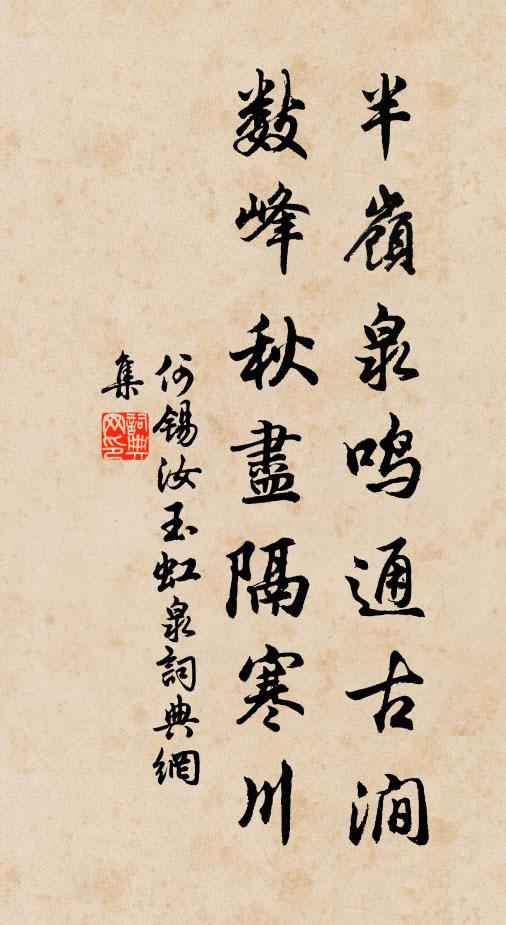 半嶺泉鸣通古澗
数峰秋盡隔寒川
何锡汝玉虹泉詞典網
集
詞典网印